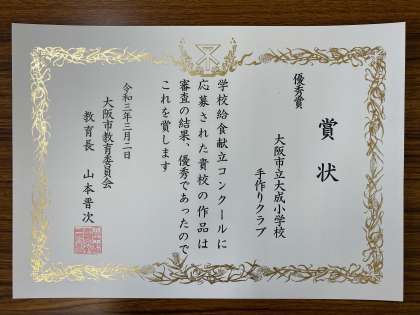 賞状
優秀賞
大阪市立大成小学校
手作りクラブ
学校給食献立コンクールに
応募された貴校の作品は
審査の結果、優秀であったので
これを賞します
令和三年三月二日
大阪市教育委員会
教育長 山本晋次